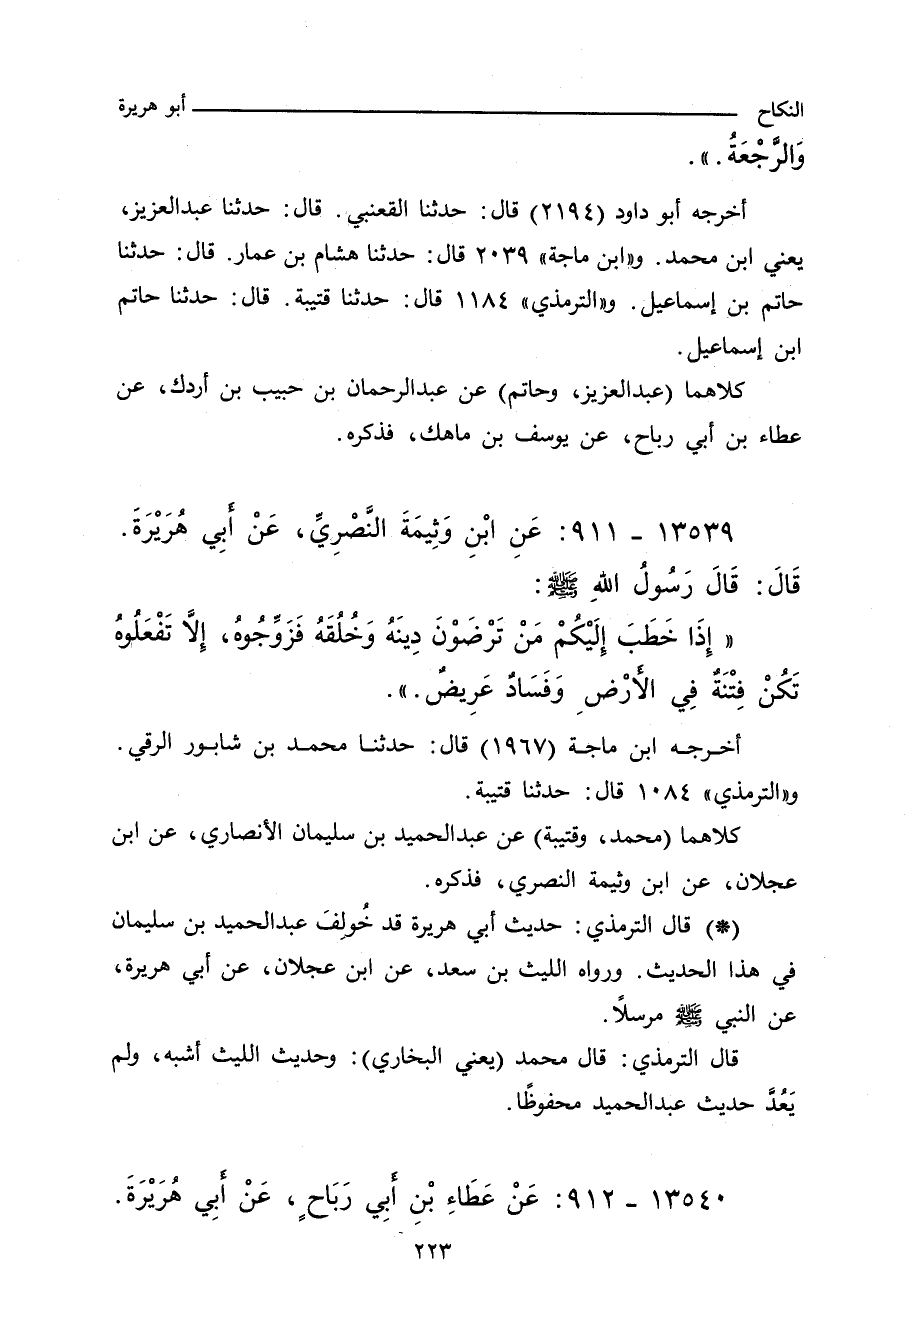 النكاح ــــــــــــــــــــــــــــــــ أبو هريرة
وَالرَّجْعَةُ.».
أخرجه أبو داود (٢١٩٤) قال: حدثنا القعنبي. قال: حدثنا عبدالعزيز،
يعني ابن محمد. و«ابن ماجة» ٢٠٣٩ قال: حدثنا هشام بن عمار. قال: حدثنا
حاتم بن إسماعيل. و«الترمذي» ١١٨٤ قال: حدثنا قتيبة. قال: حدثنا حاتم
ابن إسماعيل.
كلاهما (عبدالعزيز، وحاتم) عن عبدالرحمان بن حبيب بن أردك، عن
عطاء بن أبي رباح، عن يوسف بن ماهك، فذكره.
١٣٥٣٩ - ٩١١: عَنِ ابْنِ وَثِيمَةَ النَّصْرِيِّ، عَنْ أَبِي هُرَيْرَةَ.
قَالَ: قَالَ رَسُولُ اللهِ ﷺ:
« إِذَا خَطَبَ إِلَيْكُمْ مَنْ تَرْضَوْنَ دِينَهُ وَخُلُقَهُ فَزَوِّجُوهُ، إِلَّا تَفْعَلُوهُ
تَكُنْ فِتْنَةٌ فِي الأَرْضِ وَفَسَادٌ عَرِيضٌ.».
أخرجه ابن ماجة (١٩٦٧) قال: حدثنا محمد بن شابور الرقي.
و«الترمذي» ١٠٨٤ قال: حدثنا قتيبة.
كلاهما (محمد، وقتيبة) عن عبدالحميد بن سليمان الأنصاري، عن ابن
عجلان، عن ابن وثيمة النصري، فذكره.
(*) قال الترمذي: حديث أبي هريرة قد خُولِفَ عبدالحميد بن سليمان
في هذا الحديث. ورواه الليث بن سعد، عن ابن عجلان، عن أبي هريرة،
عن النبي ﷺ مرسلاً.
قال الترمذي: قال محمد (يعني البخاري): وحديث الليث أشبه، ولم
يَعُدَّ حديث عبدالحميد محفوظًا.
١٣٥٤٠ - ٩١٢: عَنْ عَطَاءِ بْنِ أَبِي رَبَاحٍ، عَنْ أَبِي هُرَيْرَةَ.
٢٢٣